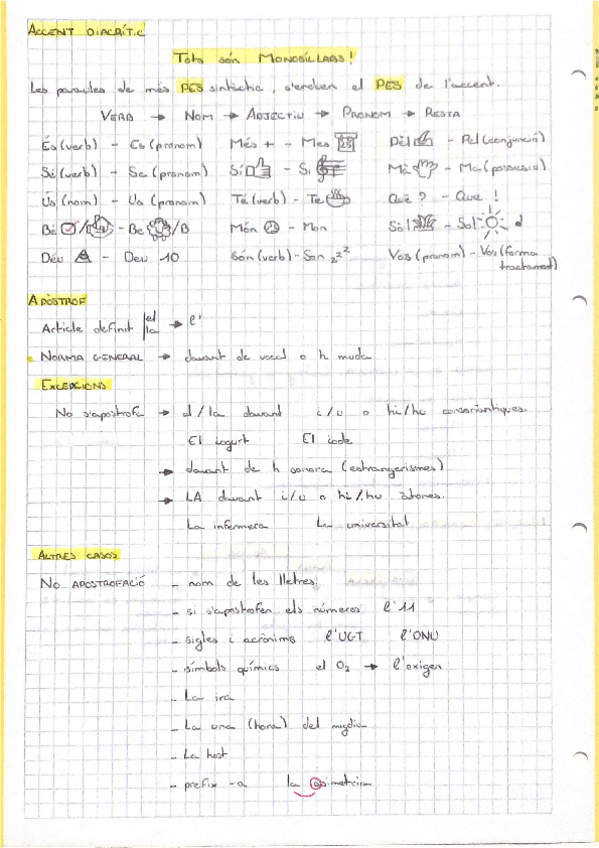 ACCENT DIACRÍTIC
Tots són MONOSÍL·LABS!
Les paraules de més PES sintàctic, s'enduen el PES de l'accent.
VERB → NOM → ADJECTIU → PRONOM → RESTA
És (verb) - Es (pronom) Més + - Mes Pèl - Pel (conjunció)
Sé (verb) - Se (pronom) Sí - Si Mà - Ma (possessiu)
Ús (nom) - Us (pronom) Té (verb) - Te Què? - Que!
Bé / - Be /B Món - Mon Sòl - Sol
Déu - Deu 10 Són (verb) - Son zzz Vós (pronom) - Vos (forma
tractament)
APÒSTROF
el
Article definit la → l'
NORMA GENERAL → davant de vocal o h muda
EXCEPCIONS
No s'apostrofa → el / la davant i/u o hi/hu consonàntiques.
El iogurt El iode
→ davant de h sonora (estrangerismes)
→ LA davant i/u o hi/hu àtones.
La infermera La universitat
ALTRES CASOS
NO APOSTROFACIÓ - nom de les lletres.
- si s'apostrofen els números l'11
- sigles i acrònims l'UGT l'ONU
- símbols químics el O2 → l'oxigen
- La ira
- La una (hora) del migdia
- La host
- prefix -a la asimetria